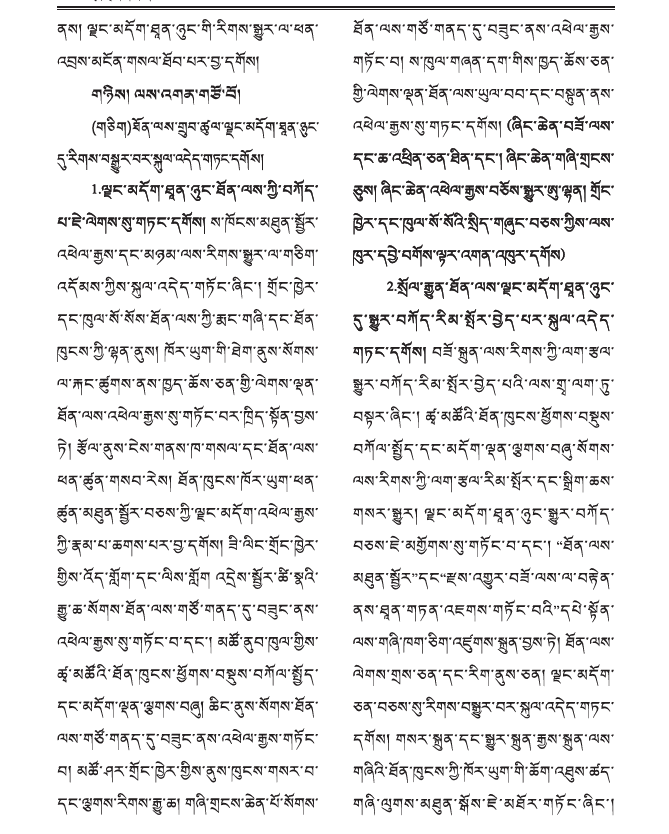 ནས། ལྗང་མདོག་ཐུན་ཉུང་གི་རིགས་སྒྱུར་ལ་ཕན་
འབྲས་མངོན་གསལ་ཐོབ་པར་བྱ་དགོས།
གཉིས། ལས་འགན་གཙོ་བོ།
(གཅིག)ཐོན་ལས་གྲུབ་ཚུལ་ལྗང་མདོག་ཐུན་ཉུང་
དུ་རིགས་བསྒྱུར་བར་སྐུལ་འདེད་གཏང་དགོས།
1.ལྗང་མདོག་ཐུན་ཉུང་ཐོན་ལས་ཀྱི་བཀོད་
པ་ཇེ་ལེགས་སུ་གཏང་དགོས། ས་ཁོངས་མཐུན་སྦྱོར་
འཕེལ་རྒྱས་དང་མཉམ་ལས་རིགས་སྒྱུར་ལ་གཅིག་
འདོམས་ཀྱིས་སྐུལ་འདེད་གཏོང་ཞིང་། གྲོང་ཁྱེར་
དང་ཁུལ་སོ་སོས་ཐོན་ལས་ཀྱི་རྨང་གཞི་དང་ཐོན་
ཁུངས་ཀྱི་ལྷན་ནུས། ཁོར་ཡུག་གི་ཐེག་ནུས་སོགས་
ལ་རྐང་ཚུགས་ནས་ཁྱད་ཆོས་ཅན་གྱི་ལེགས་ལྡན་
ཐོན་ལས་འཕེལ་རྒྱས་སུ་གཏོང་བར་ཁྲིད་སྟོན་བྱས་
ཏེ། རྩོལ་ནུས་ངེས་གནས་ཁ་གསལ་དང་ཐོན་ལས་
ཕན་ཚུན་གསབ་རེས། ཐོན་ཁུངས་ཁོར་ཡུག་ཕན་
ཚུན་མཐུན་སྦྱོར་བཅས་ཀྱི་ལྗང་མདོག་འཕེལ་རྒྱས་
ཀྱི་རྣམ་པ་ཆགས་པར་བྱ་དགོས། ཟི་ལིང་གྲོང་ཁྱེར་
གྱིས་འོད་གློག་དང་ལིས་གློག འདྲེས་སྦྱོར་ཚི་སྣའི་
རྒྱུ་ཆ་སོགས་ཐོན་ལས་གཙོ་གནད་དུ་བཟུང་ནས་
འཕེལ་རྒྱས་སུ་གཏོང་བ་དང་། མཚོ་ནུབ་ཁུལ་གྱིས་
ཚྭ་མཚོའི་ཐོན་ཁུངས་ཕྱོགས་བསྡུས་བཀོལ་སྤྱོད་
དང་མདོག་ལྡན་ལྕགས་བཞུ། ཆིང་ནུས་སོགས་ཐོན་
ལས་གཙོ་གནད་དུ་བཟུང་ནས་འཕེལ་རྒྱས་གཏོང་
བ། མཚོ་ཤར་གྲོང་ཁྱེར་གྱིས་ནུས་ཁུངས་གསར་བ་
དང་ལྕགས་རིགས་རྒྱུ་ཆ། གཞི་གྲངས་ཆེན་པོ་སོགས་
ཐོན་ལས་གཙོ་གནད་དུ་བཟུང་ནས་འཕེལ་རྒྱས་
གཏོང་བ། ས་ཁུལ་གཞན་དག་གིས་ཁྱད་ཆོས་ཅན་
གྱི་ལེགས་ལྡན་ཐོན་ལས་ཡུལ་བབ་དང་བསྟུན་ནས་
འཕེལ་རྒྱས་སུ་གཏང་དགོས། (ཞིང་ཆེན་བཟོ་ལས་
དང་ཆ་འཕྲིན་ཅན་ཐིན་དང་། ཞིང་ཆེན་གཞི་གྲངས་
ཅུས། ཞིང་ཆེན་འཕེལ་རྒྱས་བཅོས་སྒྱུར་ཨུ་ལྷན། གྲོང་
ཁྱེར་དང་ཁུལ་སོ་སོའི་སྲིད་གཞུང་བཅས་ཀྱིས་ལས་
ཁུར་དབྱེ་བགོས་ལྟར་འགན་འཁུར་དགོས)
2.སྲོལ་རྒྱུན་ཐོན་ལས་ལྗང་མདོག་ཐུན་ཉུང་
དུ་སྒྱུར་བཀོད་རིམ་སྤོར་བྱེད་པར་སྐུལ་འདེད་
གཏང་དགོས། བཟོ་སྐྲུན་ལས་རིགས་ཀྱི་ལག་རྩལ་
སྒྱུར་བཀོད་རིམ་སྤོར་བྱེད་པའི་ལས་གྲྭ་ལག་ཏུ་
བསྟར་ཞིང་། ཚྭ་མཚོའི་ཐོན་ཁུངས་ཕྱོགས་བསྡུས་
བཀོལ་སྤྱོད་དང་མདོག་ལྡན་ལྕགས་བཞུ་སོགས་
ལས་རིགས་ཀྱི་ལག་རྩལ་རིམ་སྤོར་དང་སྒྲིག་ཆས་
གསར་སྒྱུར། ལྗང་མདོག་ཐུན་ཉུང་སྒྱུར་བཀོད་
བཅས་ཇེ་མགྱོགས་སུ་གཏོང་བ་དང་། “ཐོན་ལས་
མཐུན་སྦྱོར”དང“རྫས་འགྱུར་བཟོ་ལས་ལ་བརྟེན་
ནས་ཐུན་གཏན་འཇགས་གཏོང་བའི”དཔེ་སྟོན་
ལས་གཞི་ཁག་ཅིག་འཛུགས་སྐྲུན་བྱས་ཏེ། ཐོན་ལས་
ལེགས་གྲས་ཅན་དང་རིག་ནུས་ཅན། ལྗང་མདོག་
ཅན་བཅས་སུ་རིགས་བསྒྱུར་བར་སྐུལ་འདེད་གཏང་
དགོས། གསར་སྐྲུན་དང་སྒྱུར་སྐྲུན་རྒྱས་སྐྲུན་ལས་
གཞིའི་ཐོན་ཁུངས་ཀྱི་ཁོར་ཡུག་གི་ཆོག་འཐུས་ཚད་
གཞི་ལུགས་མཐུན་སྒོས་ཇེ་མཐོར་གཏོང་ཞིང་།